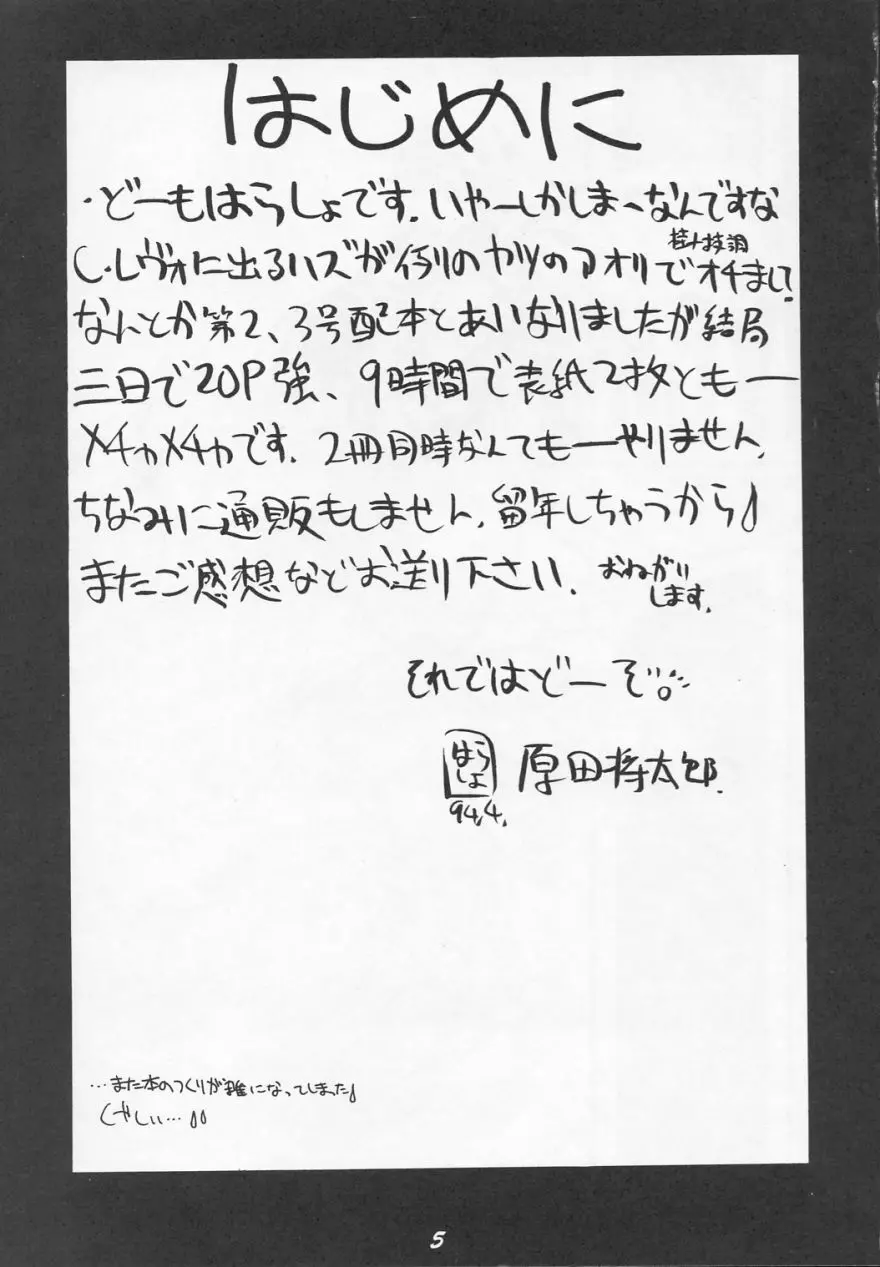 はじめに
・どーもはらしょです。いやーしかしまーなんですな
C・レヴォに出るハズが例のヤツのアオリでオチまして
なんとか第2、3号配本とあいなりましたが結局
三日で20P強、9時間で表紙2枚ともー
メチャメチャです。2冊同時なんてもーやりません。
ちなみに通販もしません。留年しちゃうから
またご感想などお送り下さい。おねがい
します。
それではどーぞ
はらしょ 原田将太郎.
94.4.
…また本のつくりが雑になってしまった
くやしい…
5